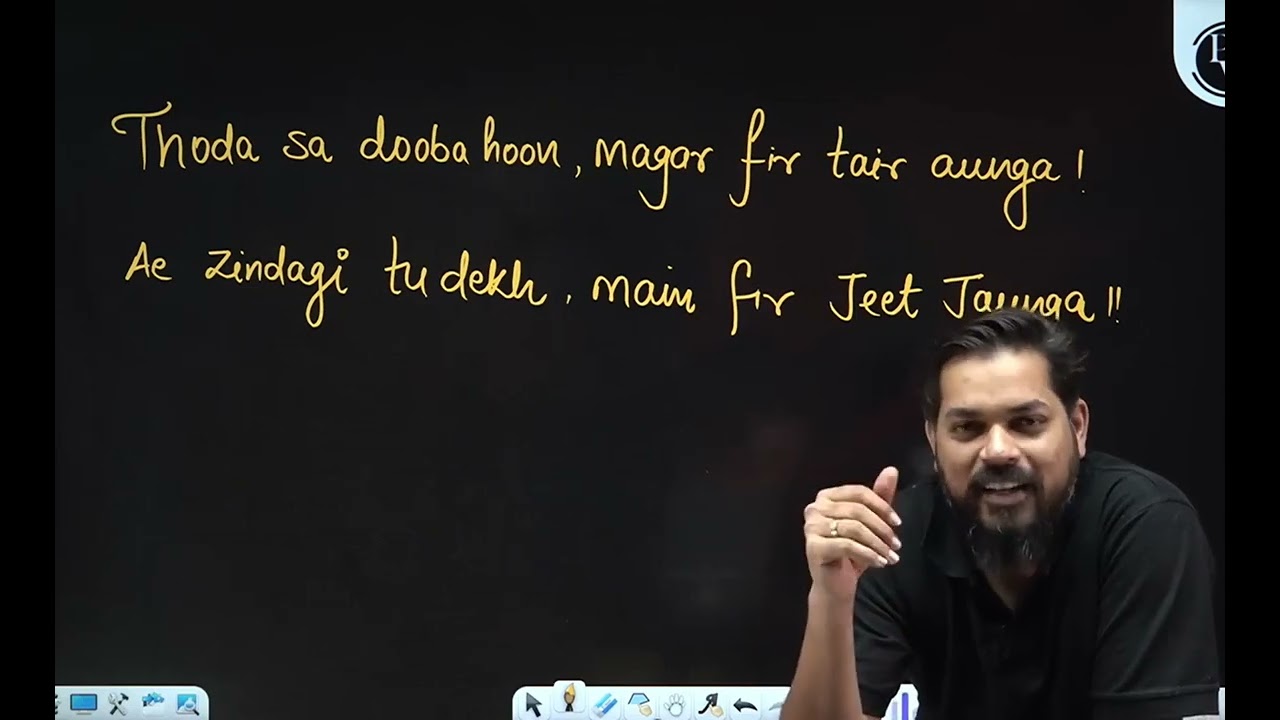 Thoda sa dooba hoon, magar fir tair aunga!
Ae zindagi tu dekh, main fir Jeet Jaunga!!